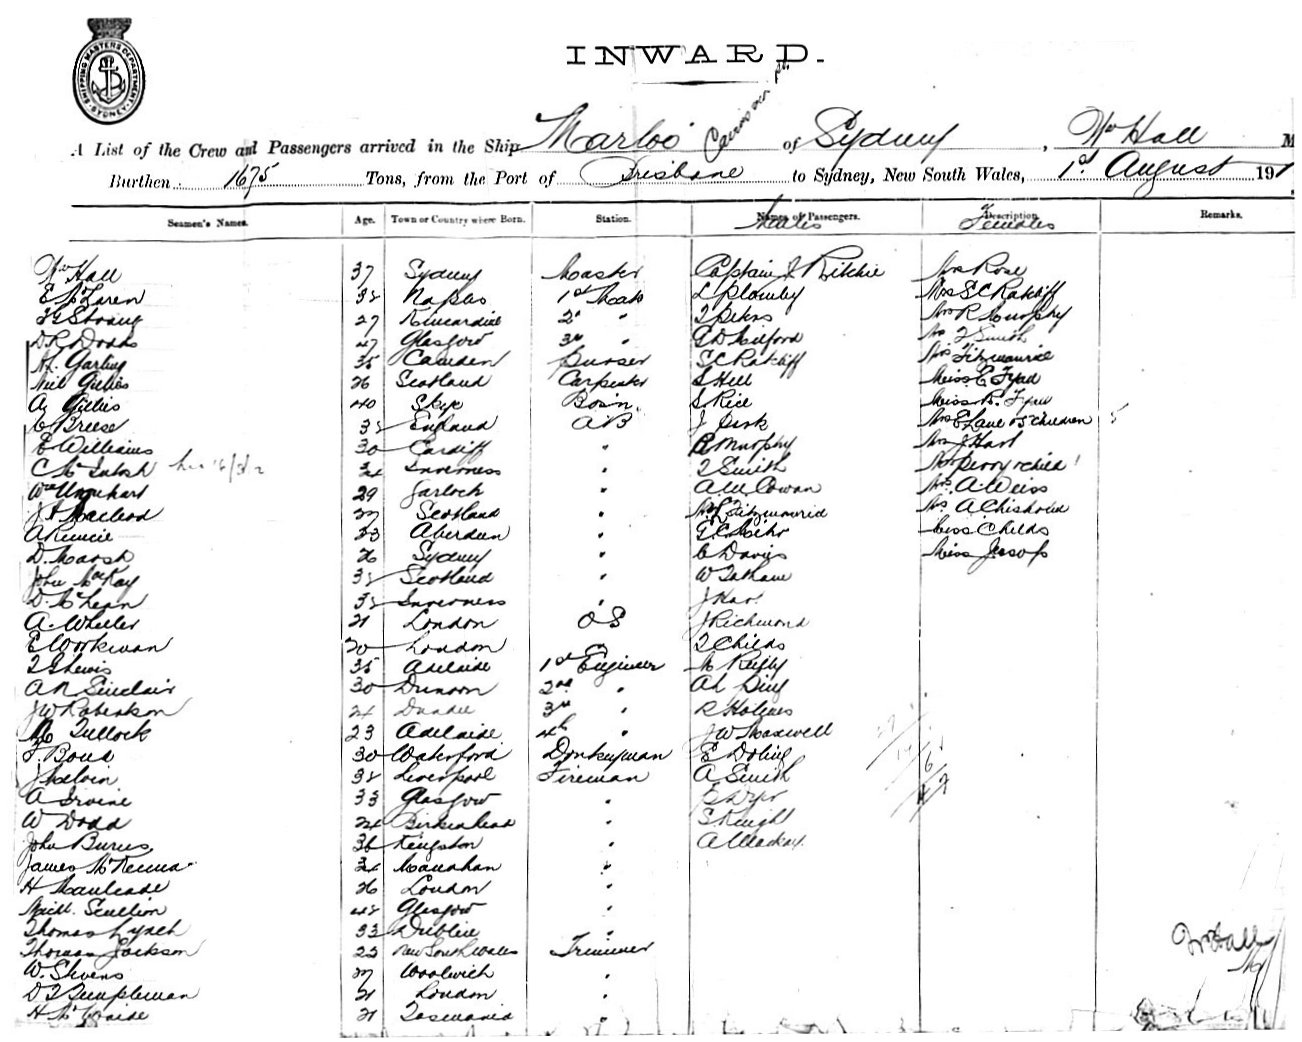 SHIPPING MASTERS DEPARTMENT SYDNEY
INWARD.
A List of the Crew and Passengers arrived in the Ship Marloo of Sydney, Wm Hall M
Burthen 1675 Tons, from the Port of Brisbane to Sydney, New South Wales, 1st August 191
Seamen's Names. Age. Town or Country where Born. Station. Names of Passengers. Description Remarks.
Males Females
Wm Hall 37 Sydney Master Captain J Ritchie Mrs Rose
E McLaren 38 Naples 1st Mate L Plomley Mrs S C Ratcliff
Strang 27 Kincardine 2d " T Peters Mrs R Murphy
D R Dodds 47 Glasgow 3rd " G D Milford Mrs T Smith
Garling 35 Camden Purser S C Ratcliff Mrs Fitzmaurice
Neil Gillies 26 Scotland Carpenter S Hill Miss E Tyad
A Gillies 40 Skye Bosin S Rice Miss
C Breese 38 England AB J Sirk Mrs E Lane & 5 children 5
E Williams 30 Cardiff " R Murphy Mrs J Hart
C McIntosh 34 Inverness " T Smith Mrs Perry & child 1
Wm Urquhart 29 Garloch " A. W. Cowan Mrs A. Weiss
J A Macleod 27 Scotland " Fitzmaurice Mrs A Chisholm
A Rennie 33 Aberdeen " G C Miche Miss Childs
D. Marsh 26 Sydney " C Davis Miss Jessop
John McKay 38 Scotland " W Tatham
D. McLean 38 Inverness " J Hart
A. Wheeler 21 London OS J Richmond
E Workman 20 London " T Childs
T G Lewis 35 Adelaide 1st Engineer M Reilly
A R Sinclair 30 Dunoon 2nd " Ah Ping
J W Robertson 24 Dundee 3rd " R Holmes
Tullock 23 Adelaide 4th " J W Maxwell
F. Bond 30 Waterford Donkeyman E Doling
J Melvin 38 Liverpool Fireman A Smith
A Irvine 33 Glasgow " E Dyer
W Dodd 24 Birkenhead " S Knight
John Burns 36 Kingston " A Mackay
James McKenna 34 Monahan "
H Mauleade 26 London "
Michl. Scullion 48 Glasgow "
Thomas Lynch 33 Dublin "
Thomas Jackson 23 New South Wales Trimmer
W. Stevens 27 Woolwich "
D T Templeman 21 London "
H McQuaide 21 Tasmania "
Wm Hall